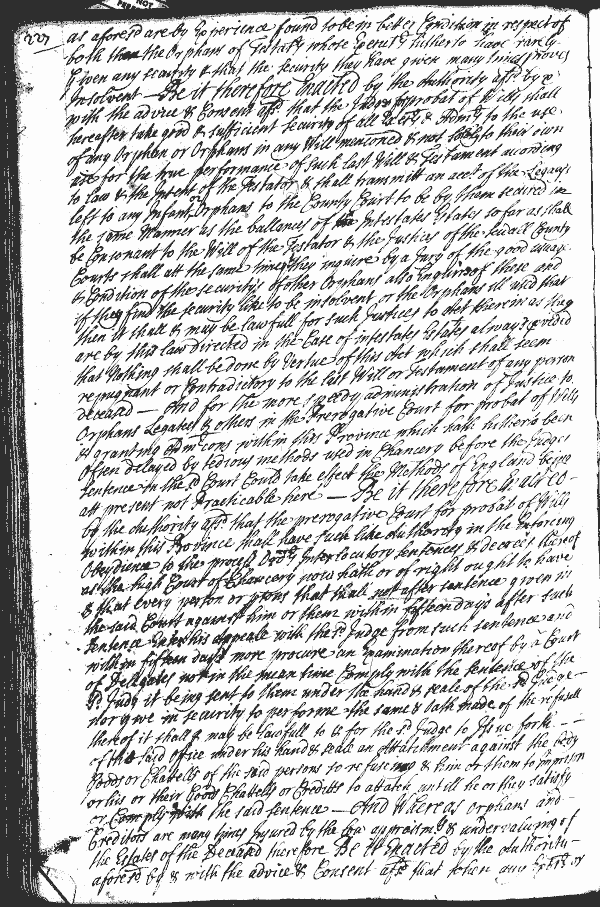 227
as aforesd are by Experience found to be in better Condition in respect of
both than the Orphans of Testatrs whose Executrs hitherto have rarely
given any security & that the security they have given many times proves
Insolvent — Be it therefore Enacted by the Authority afsd by &
with the advice & Consent afsd that the Judge for probat of Wills shall
hereafter take good & sufficient security of all & to the use
of any Orphan or Orphans in any Will menconed & not to their own
use for the true performance of such last Will & Testament according
to Law & the Intent of the Testator & shall transmitt an acct of the Legacys
left to any Infant or Orphans to the County Court to be by them secured in
the same Manner as the ballances of Intestates Estates so far as shall
be Consonant to the Will of the Testator & the Justices of the sevall County
Courts shall att the same time they inquire by a Jury of the good usage
& Condition of the securitys of other Orphans also inquire of these and
if they find the security like to be insolvent or the Orphans ill used that
then it shall & may be lawfull for such Justices to Act therein as they
are by this law directed in the Case of intestates Estates always provided
that Nothing shall be done by Vertue of this Act which shall seem
repugnant or Contradictory to the last Will or Testament of any person
deceased — And for the more speedy administration of Justice to
Orphans Legatees & others in the Prerogative Court for probat of Wills
& granting Admcons within this Province which hath hitherto been
Often delayed by tedious methods used in Chancery before the Judges
sentence in the sd Court Could take effect the Methods of England being
att present not Practicable here — Be it therefore
by the Authority afsd that the prerogative Court for probat of Wills
within this Province shall have such like Authority in the Enforceing
Obedience to the process Ordrs Interlocutory sentences & decrees thereof
as the high Court of Chancery now hath or of right ought to have
& that every person or psons that shall not after sentence given in
the said Court against him or them within fifteen days after such
sentence Enter his appeale with the sd Judge from such sentence and
within fifteen days more procure an Examination thereof by a Court
of Delegates nor in the mean time Comply with the sentence of the
sd Judg it being sent to them under the hand & seale of the sd Judge
nor give in security to performe the same & Oath made of the refusell
thereof it shall & may be lawfull to & for the sd Judge to Issue forth
of the said office under his hand & seale an Attatchment against the body
Goods or Chattells of the said persons so refuseing & him or them to imprison
or his or their Goods Chattells or Creditts to attatch untill he or they satisfy
or Comply with the said sentence — And Whereas Orphans and
Creditors are many times Injured by the low appraismt & undervaluing of
the Estates of the Deceased therefore Be it Enacted by the authority
aforesd by & with the advice & Consent afsd that when any Exrs or